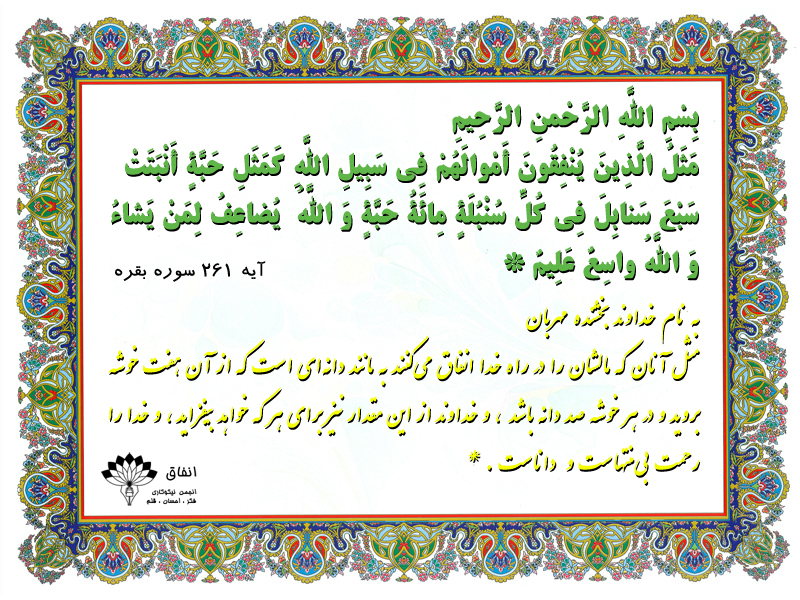 بِسْمِ اللَّهِ الرَّحْمنِ الرَّحِيمِ
مَثَلُ الَّذِينَ يُنْفِقُونَ أَمْوالَهُمْ فِی سَبِيلِ اللَّهِ كَمَثَلِ حَبَّةٍ أَنْبَتَتْ
سَبْعَ سَنابِلَ فِی كُلِّ سُنْبُلَةٍ مِائَةُ حَبَّةٍ وَ اللَّهُ يُضاعِفُ لِمَنْ يَشاءُ
وَ اللَّهُ واسِعٌ عَلِيمٌ *
آیه ۲۶۱ سوره بقره
به نام خداوند بخشنده مهربان
مَثَل آنان که مالشان را در راه خدا انفاق می‌کنند به مانند دانه‌ای است که از آن هفت خوشه
بروید و در هر خوشه صد دانه باشد ، و خداوند از این مقدار نیز برای هر که خواهد بیفزاید ، و خدا را
رحمت بی‌منتهاست و داناست . *
انفاق
انجمن نیکوکاری
فکر ، احسان ، قلم